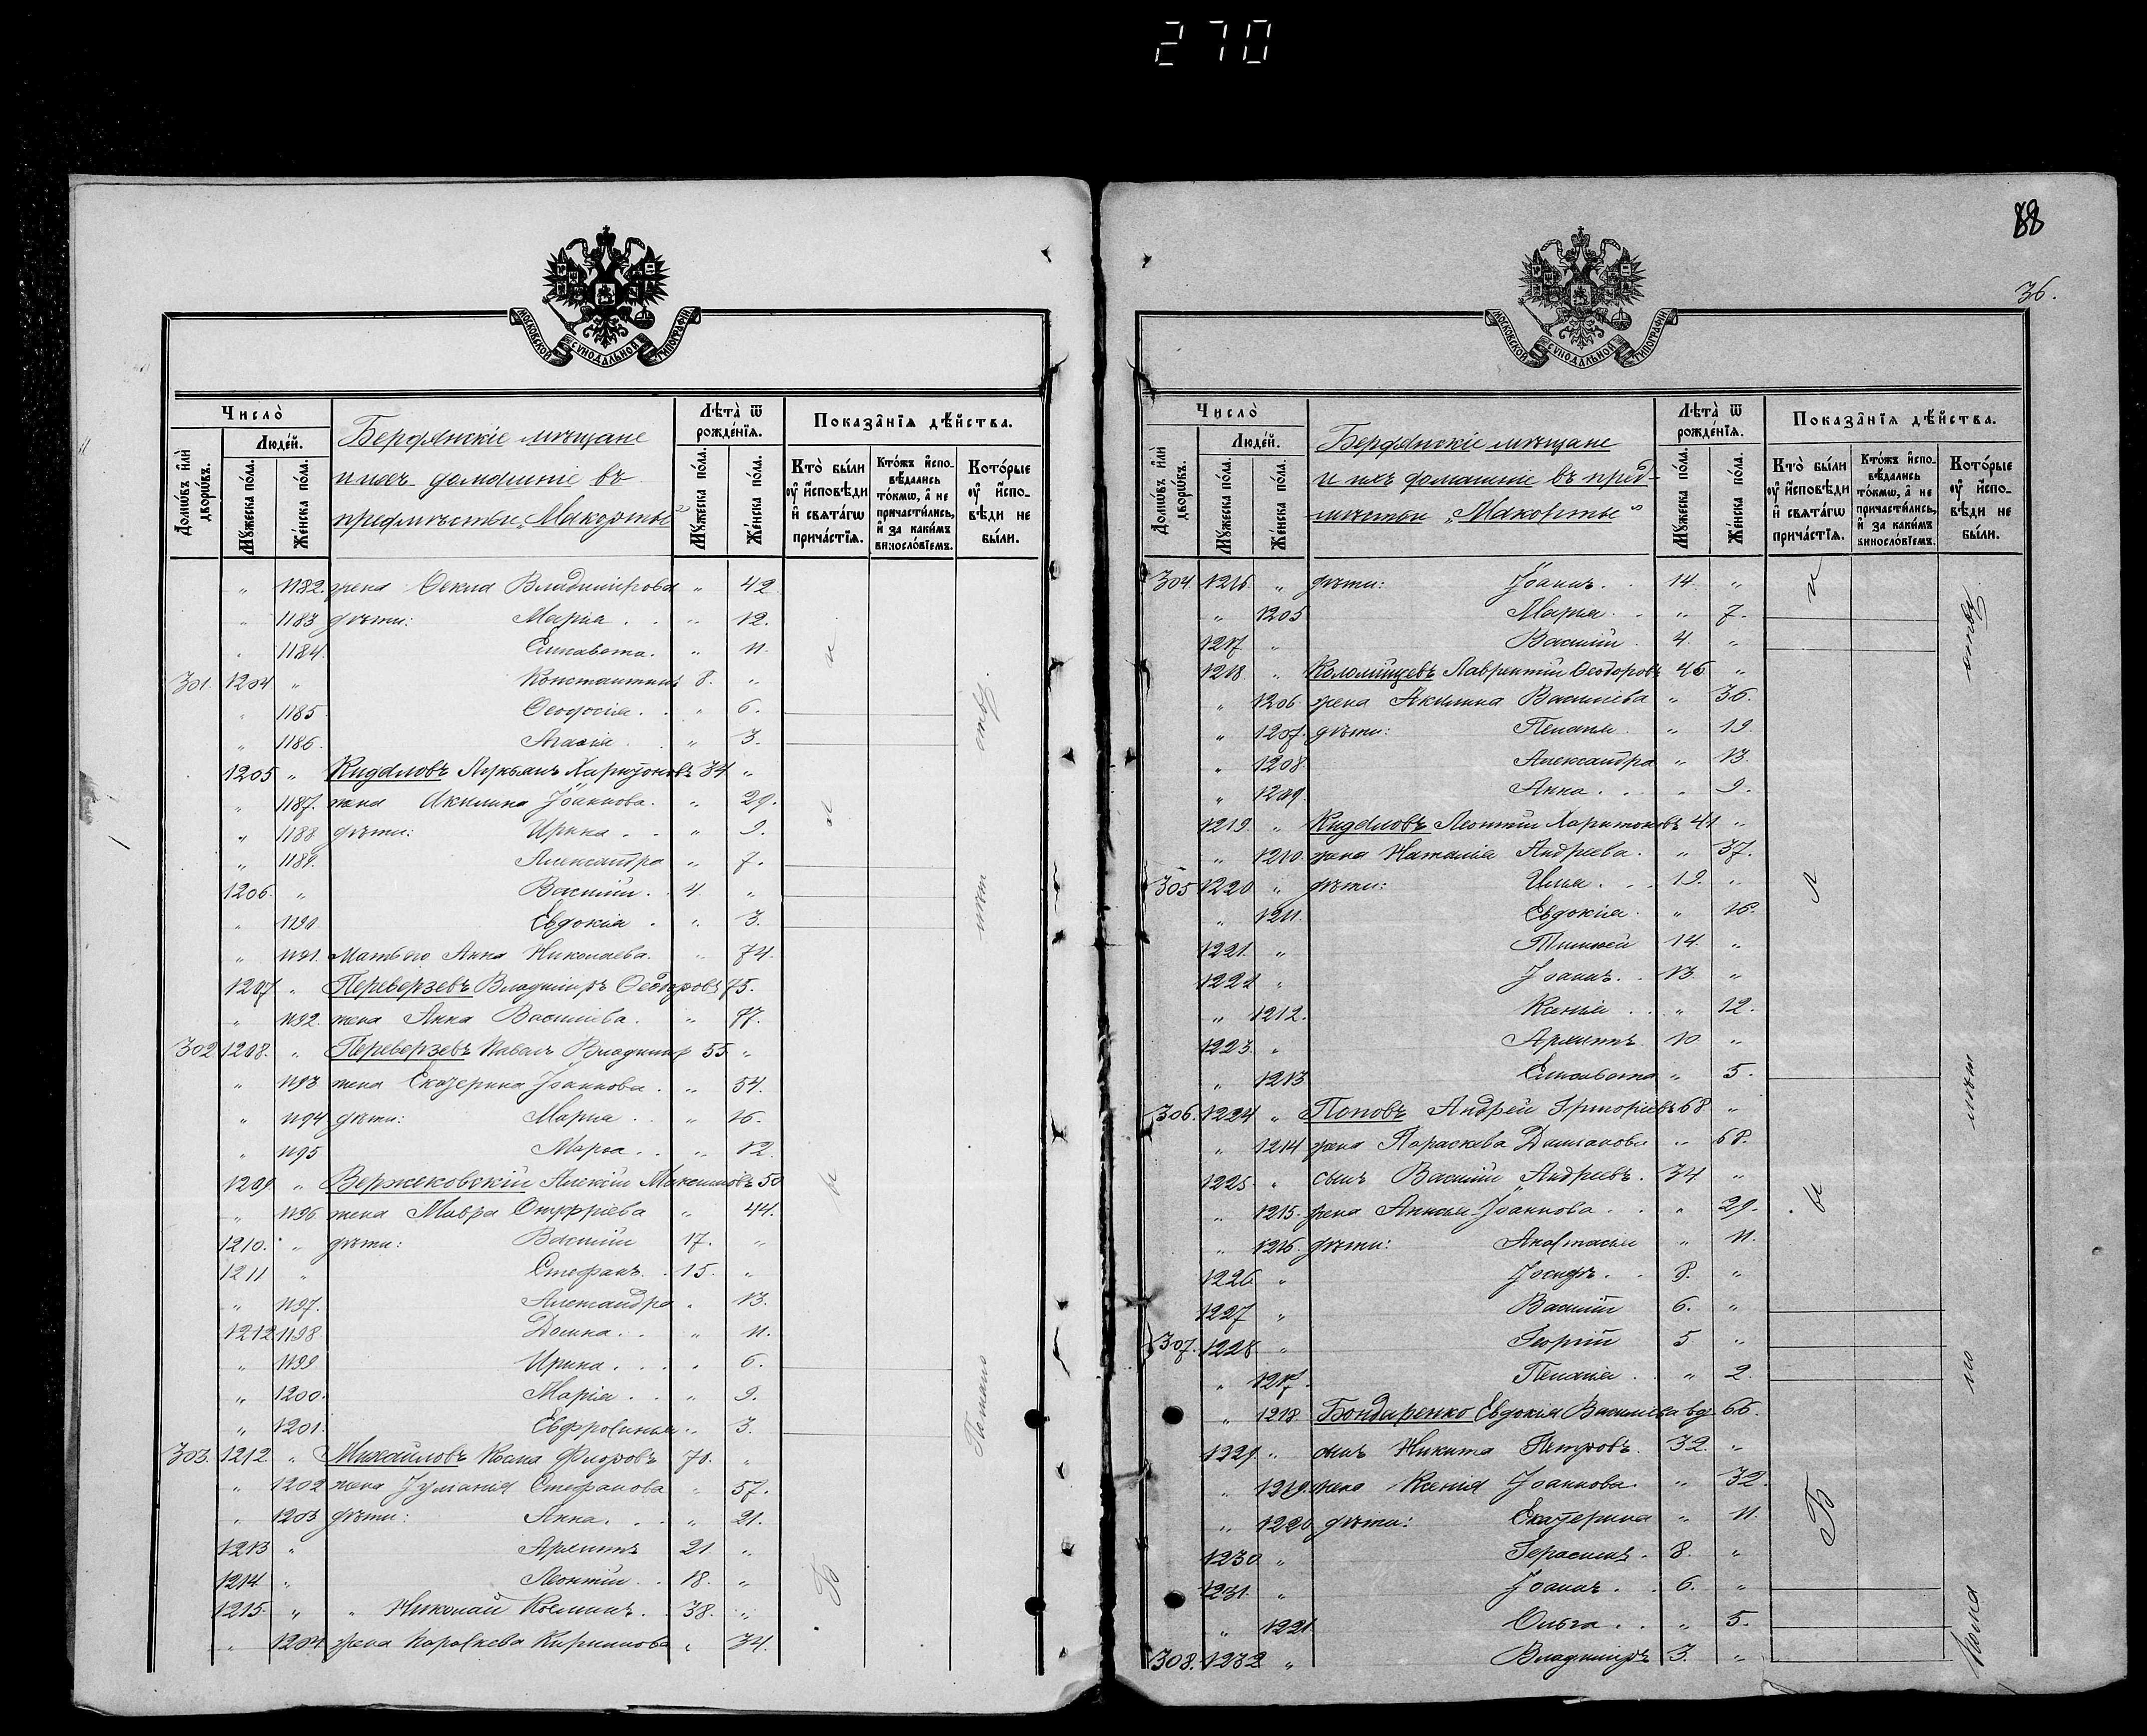 270
МОСКОВСКОЙ СѴНОДАЛЬНОЙ ТИПОГРАФІИ
Число̀
Людей.
Домѡвъ и҆лѝ дворѡвъ.
Мꙋжеска по́ла.
Же́нска по́ла.
Бердянскіе мѣщане
и ихъ домашніе въ
предмѣстьи „Макорты"
Лѣта̀ ѿ рожде́нїѧ.
Мꙋжеска по́ла.
Же́нска по́ла.
Показа̑нїѧ дѣ́йства.
Кто̀ бы́ли ᲂу҆ и҆сповѣди и҆ свѧта́гѡ прича́стїѧ.
Кто́жъ и҆спо-вѣдались то́кмѡ, а҆ не причасти́лись, и҆ за каки́мъ винослові́емъ.
Кото́рые ᲂу҆ и҆спо-вѣди не бы́ли.
„ 1182. жена Ѳекла Владимірова „ 42
„ 1183 дѣти: Марія . . „ 12.
„ 1184. Елисавета. „ 11.
301. 1204 „ Константинъ 8. „
„ 1185 Ѳеодосія . . „ 6.
„ 1186. „ 3.
1205 „ Кидаловъ Лукьянъ Харитоновъ 34 „
„ 1187. жена Акилина Іоаннова. „ 29.
„ 1188 дѣти: Ирина . . „ 9.
„ 1189. Александра „ 7.
1206. „ Василій . 4. „
„ 1190. Евдокія . „ 3.
„ 1191. мать его Анна Николаева. „ 74.
1207 „ Переверзевъ Владиміръ Ѳеодоровъ 75.
„ 1192. жена Анна Василіева. „ 77.
302 1208. „ Переверзевъ Павелъ Владимір 55 „
„ 1193 жена Екатерина Іоаннова . „ 54.
„ 1194 дѣти: Марія . . „ 16.
„ 1195 Марѳа . . „ 12
1209 „ Вержековскій Алексій Максимовъ 50
„ 1196 жена Мавра Онуфріева „ 44.
1210. „ дѣти: Василій 17. „
1211 „ Стефанъ . 15. „
„ 1197. Александра „ 13.
1212 1198 Домна . . „ 11.
„ 1199 Ирина . . . „ 6.
„ 1200. Марія . . „ 9.
„ 1201. Евфросинья „ 3.
303. 1212. „ Михайловъ Косма Ѳидровъ 70. „
„ 1202 жена Іуліанія Стефанова „ 57.
„ 1203 дѣти: Анна . . . „ 21.
1213 „ Архиппъ 21 „
1214. „ Леонтій . . 18. „
1215. „ „ Николай Косминъ . 38. „
„ 1204. жена Параскева Кирилова „ 34.
88
36.
МОСКОВСКОЙ СѴНОДАЛЬНОЙ ТИПОГРАФІИ
Число̀
Людей.
Домѡвъ и҆лѝ дворѡвъ.
Мꙋжеска по́ла.
Же́нска по́ла.
Бердянскіе мѣщане
и ихъ домашніе въ пред-
мѣстьи „Макорты"
Лѣта̀ ѿ рожде́нїѧ.
Мꙋжеска по́ла.
Же́нска по́ла.
Показа̑нїѧ дѣ́йства.
Кто̀ бы́ли ᲂу҆ и҆сповѣди и҆ свѧта́гѡ прича́стїѧ.
Кто́жъ и҆спо-вѣдались то́кмѡ, а҆ не причасти́лись, и҆ за каки́мъ винослові́емъ.
Кото́рые ᲂу҆ и҆спо-вѣди не бы́ли.
304 1216. „ дѣти: Іоаннъ . . 14. „
„ 1205 Марья . „ 7.
1217 „ Василій . 4. „
1218. „ Коломійцевъ Лаврентій Ѳеодоровъ 46 „
„ 1206. жена Акилина Василіева „ 36.
„ 1207. дѣти: Пелагія „ 19.
„ 1208. Александра „ 13.
„ 1209. Анна . . „ 9.
1219. „ Кидаловъ Леонтій Харитоновъ 41 „
„ 1210. жена Наталія Андреева. „ 37.
305 1220 „ дѣти: Илья . . . 19. „
„ 1211. Евдокія . „ 16.
1221. „ 14. „
1222 „ Іоаннъ . . 13. „
„ 1212. Ксенія . . „ 12.
1223. „ Архиппъ 10 „
„ 1213 Елисавета „ 5.
306. 1224 „ Поповъ Андрей Григоріевъ 68 „
„ 1214 жена Параскева Даміанова „ 68.
1225 „ сынъ Василій Андреевъ . 34 „
„ 1215. жена Анисья Іоаннова . . „ 29.
„ 1216. дѣти: Анастасія „ 11.
1226 „ Іосифъ . . 8. „
1227 „ Василій 6. „
307. 1228 „ Георгій 5 „
„ 1217. Пелагія . „ 2.
„ 1218 Бондаренко Евдокія Василіева вд. 66.
1229. „ сынъ Никита Петровъ. 32. „
„ 1219. жена Ксенія Іоаннова. „ 32.
„ 1220 дѣти: Екатерина „ 11.
1230 „ Герасимъ . 8. „
1231. „ Іоаннъ . . 6. „
„ 1221 Ольга . . „ 5.
308. 1232 „ Владиміръ 3. „